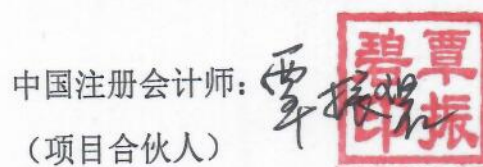 中国注册会计师：覃振碧
（项目合伙人）
覃振碧印